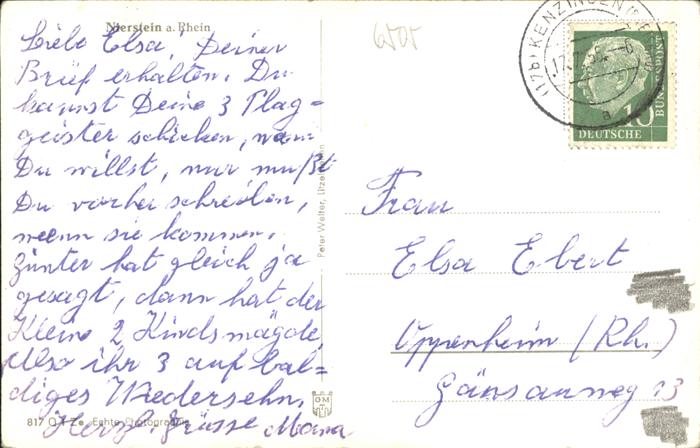 Nierstein a. Rhein
Liebe Elsa, Deinen
Brief erhalten. Du
kannst Deine 3 Plag=
geister schicken, wenn
Du willst, nur mußt
Du vorher schreiben,
wenn sie kommen.
Günter hat gleich ja
gesagt, dann hat der
Kleine 2 Kindsmägde,
Also ihr 3 auf bal=
diges Wiedersehn.
Herzl. Grüsse Mama
817 O Echte Photographie
Peter Welter,
6505
(17b) KENZINGEN
a
10
DEUTSCHE
BUNDESPOST
Frau
Elsa Ebert
Oppenheim (Rh.)
Gänsauweg 13
OM